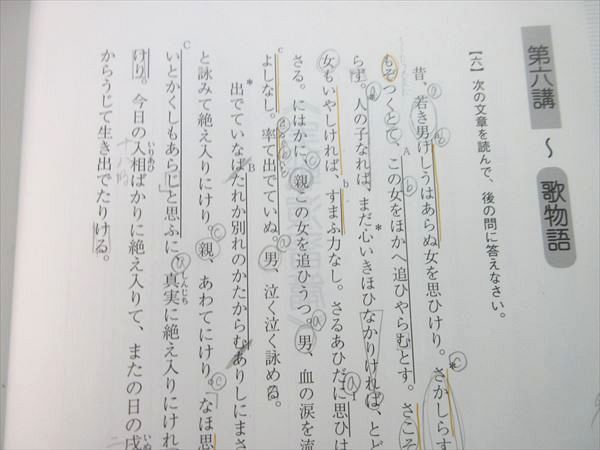 第六講 ～ 歌物語
【六】 次の文章を読んで、後の問に答えなさい。
昔、若き男けしうはあらぬ女を思ひけり。さかしらす
もぞつくとて、この女をほかへ追ひやらむとす。さこそ
らず。人の子なれば、まだ心いきほひなかりければ、とど
女もいやしければ、すまふ力なし。さるあひだに思ひは
さる。にはかに、親この女を追ひうつ。男、血の涙を流
よしなし。率て出でていぬ。男、泣く泣く詠める。
出でていなばたれか別れのかたからむありしにまさ
と詠みて絶え入りにけり。親、あわてにけり。「なほ思
いとかくしもあらじ」と思ふに、真実に絶え入りにけれ
しんじち
けり。今日の入相ばかりに絶え入りて、またの日の戌
いりあひ
いぬ
からうじて生き出でたりける。
A
b
c
B
C